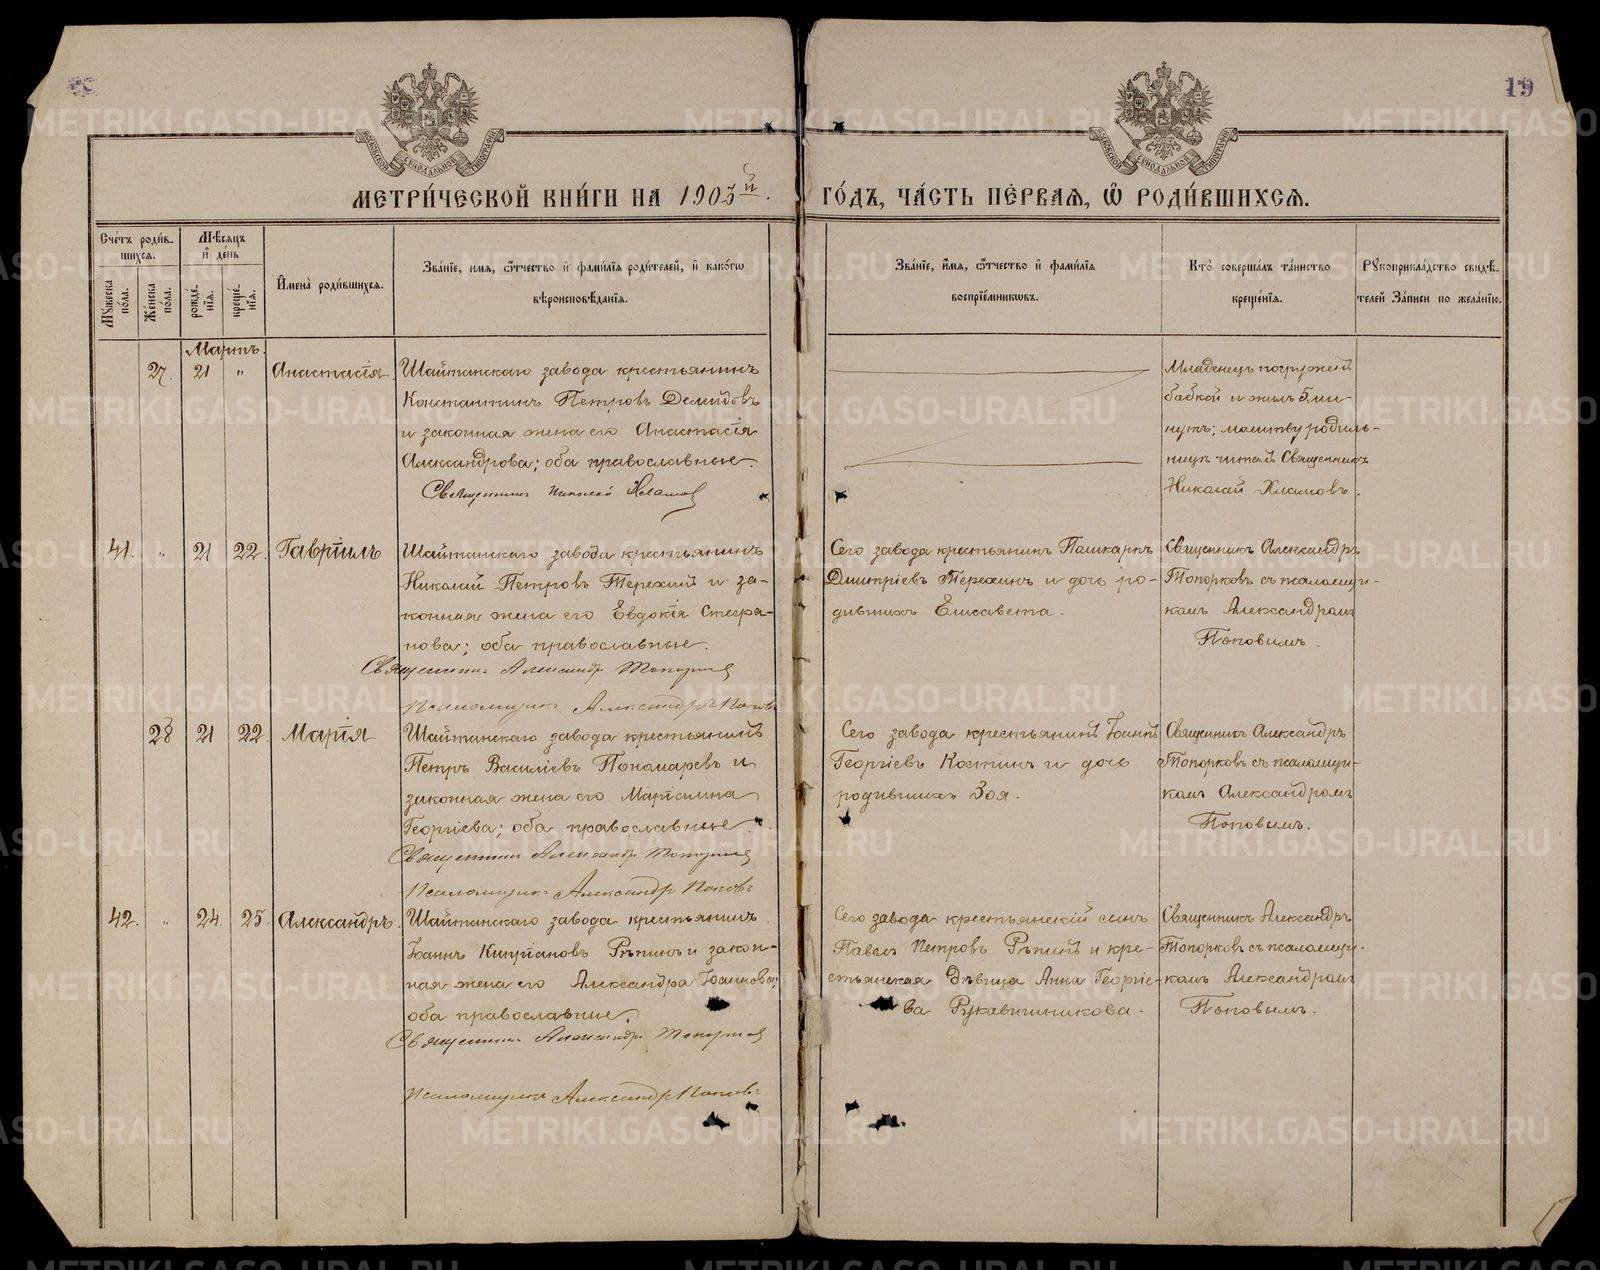 19
МЕТРИ́ЧЕСКОЙ КНИ́ГИ НА 1903й. ГО́ДЪ, ЧА́СТЬ ПЕ́РВАѦ, Ѡ҆ РОДИ́ВШИХСѦ.
Сче́тъ роди́в-
шихсѧ.
Мꙋжеска по́ла.
Же́нска по́ла.
Мѣ́сѧцъ
и҆ де́нь
рожде́-
нїѧ.
креще́-
нїѧ.
И҆мена̀ роди́вшихсѧ.
Зва́нїе, имѧ, ѻ҆́тчество и҆ фами́лїѧ роди́телей, и҆ како́гѡ
вѣроисповѣ́данїѧ.
Зва́нїе, и҆́мѧ, ѻ҆́тчество и҆ фами́лїѧ
воспрїе́мникѡвъ.
Кто̀ соверша́лъ та́инство
креще́нїѧ.
Рꙋкоприкла́дство свидѣ́-
телей За́писи по жела́нїю.
Мартъ.
27. 21 " Анастасія
Шайтанскаго завода крестьянинъ
Константинъ Петровъ Демидовъ
и законная жена его Анастасія
Александрова; оба православные.
Священникъ Николай Хламовъ
Младенецъ погруженъ
бабкой и жилъ 5 ми-
нутъ; молитву родиль-
ницѣ читалъ Священникъ
Николай Хламовъ.
41. " 21 22. Гавріилъ
Шайтанскаго завода крестьянинъ
Николай Петровъ Терехинъ и за-
конная жена его Евдокія Стефа-
нова; оба православные.
Священникъ Александръ Топорковъ
Псаломщикъ Александръ Поповъ
Сего завода крестьянинъ
Дмитріевъ Терехинъ и дочь ро-
дившихъ Елисавета.
Священникъ Александръ
Топорковъ съ псаломщи-
комъ Александромъ
Поповымъ.
28 21 22. Марія
Шайтанскаго завода крестьянинъ
Петръ Василіевъ Пономаревъ и
законная жена его Маріамна
Георгіева; оба православные.
Священникъ Александръ Топорковъ
Псаломщикъ Александръ Поповъ
Сего завода крестьянинъ Іоаннъ
Георгіевъ Костинъ и дочь
родившихъ Зоя.
Священникъ Александръ
Топорковъ съ псаломщи-
комъ Александромъ
Поповымъ.
42. " 24. 25. Александръ.
Шайтанскаго завода крестьянинъ
Іоаннъ Кипріановъ Рѣпинъ и закон-
ная жена его Александра Іоаннова;
оба православные.
Священникъ Александръ Топорковъ
Псаломщикъ Александръ Поповъ
Сего завода крестьянскій сынъ
Павелъ Петровъ Рѣпинъ и кре-
стьянская дѣвица Анна Георгіе-
ва Рукавишникова.
Священникъ Александръ
Топорковъ съ псаломщи-
комъ Александромъ
Поповымъ.
METRIKI.GASO-URAL.RU